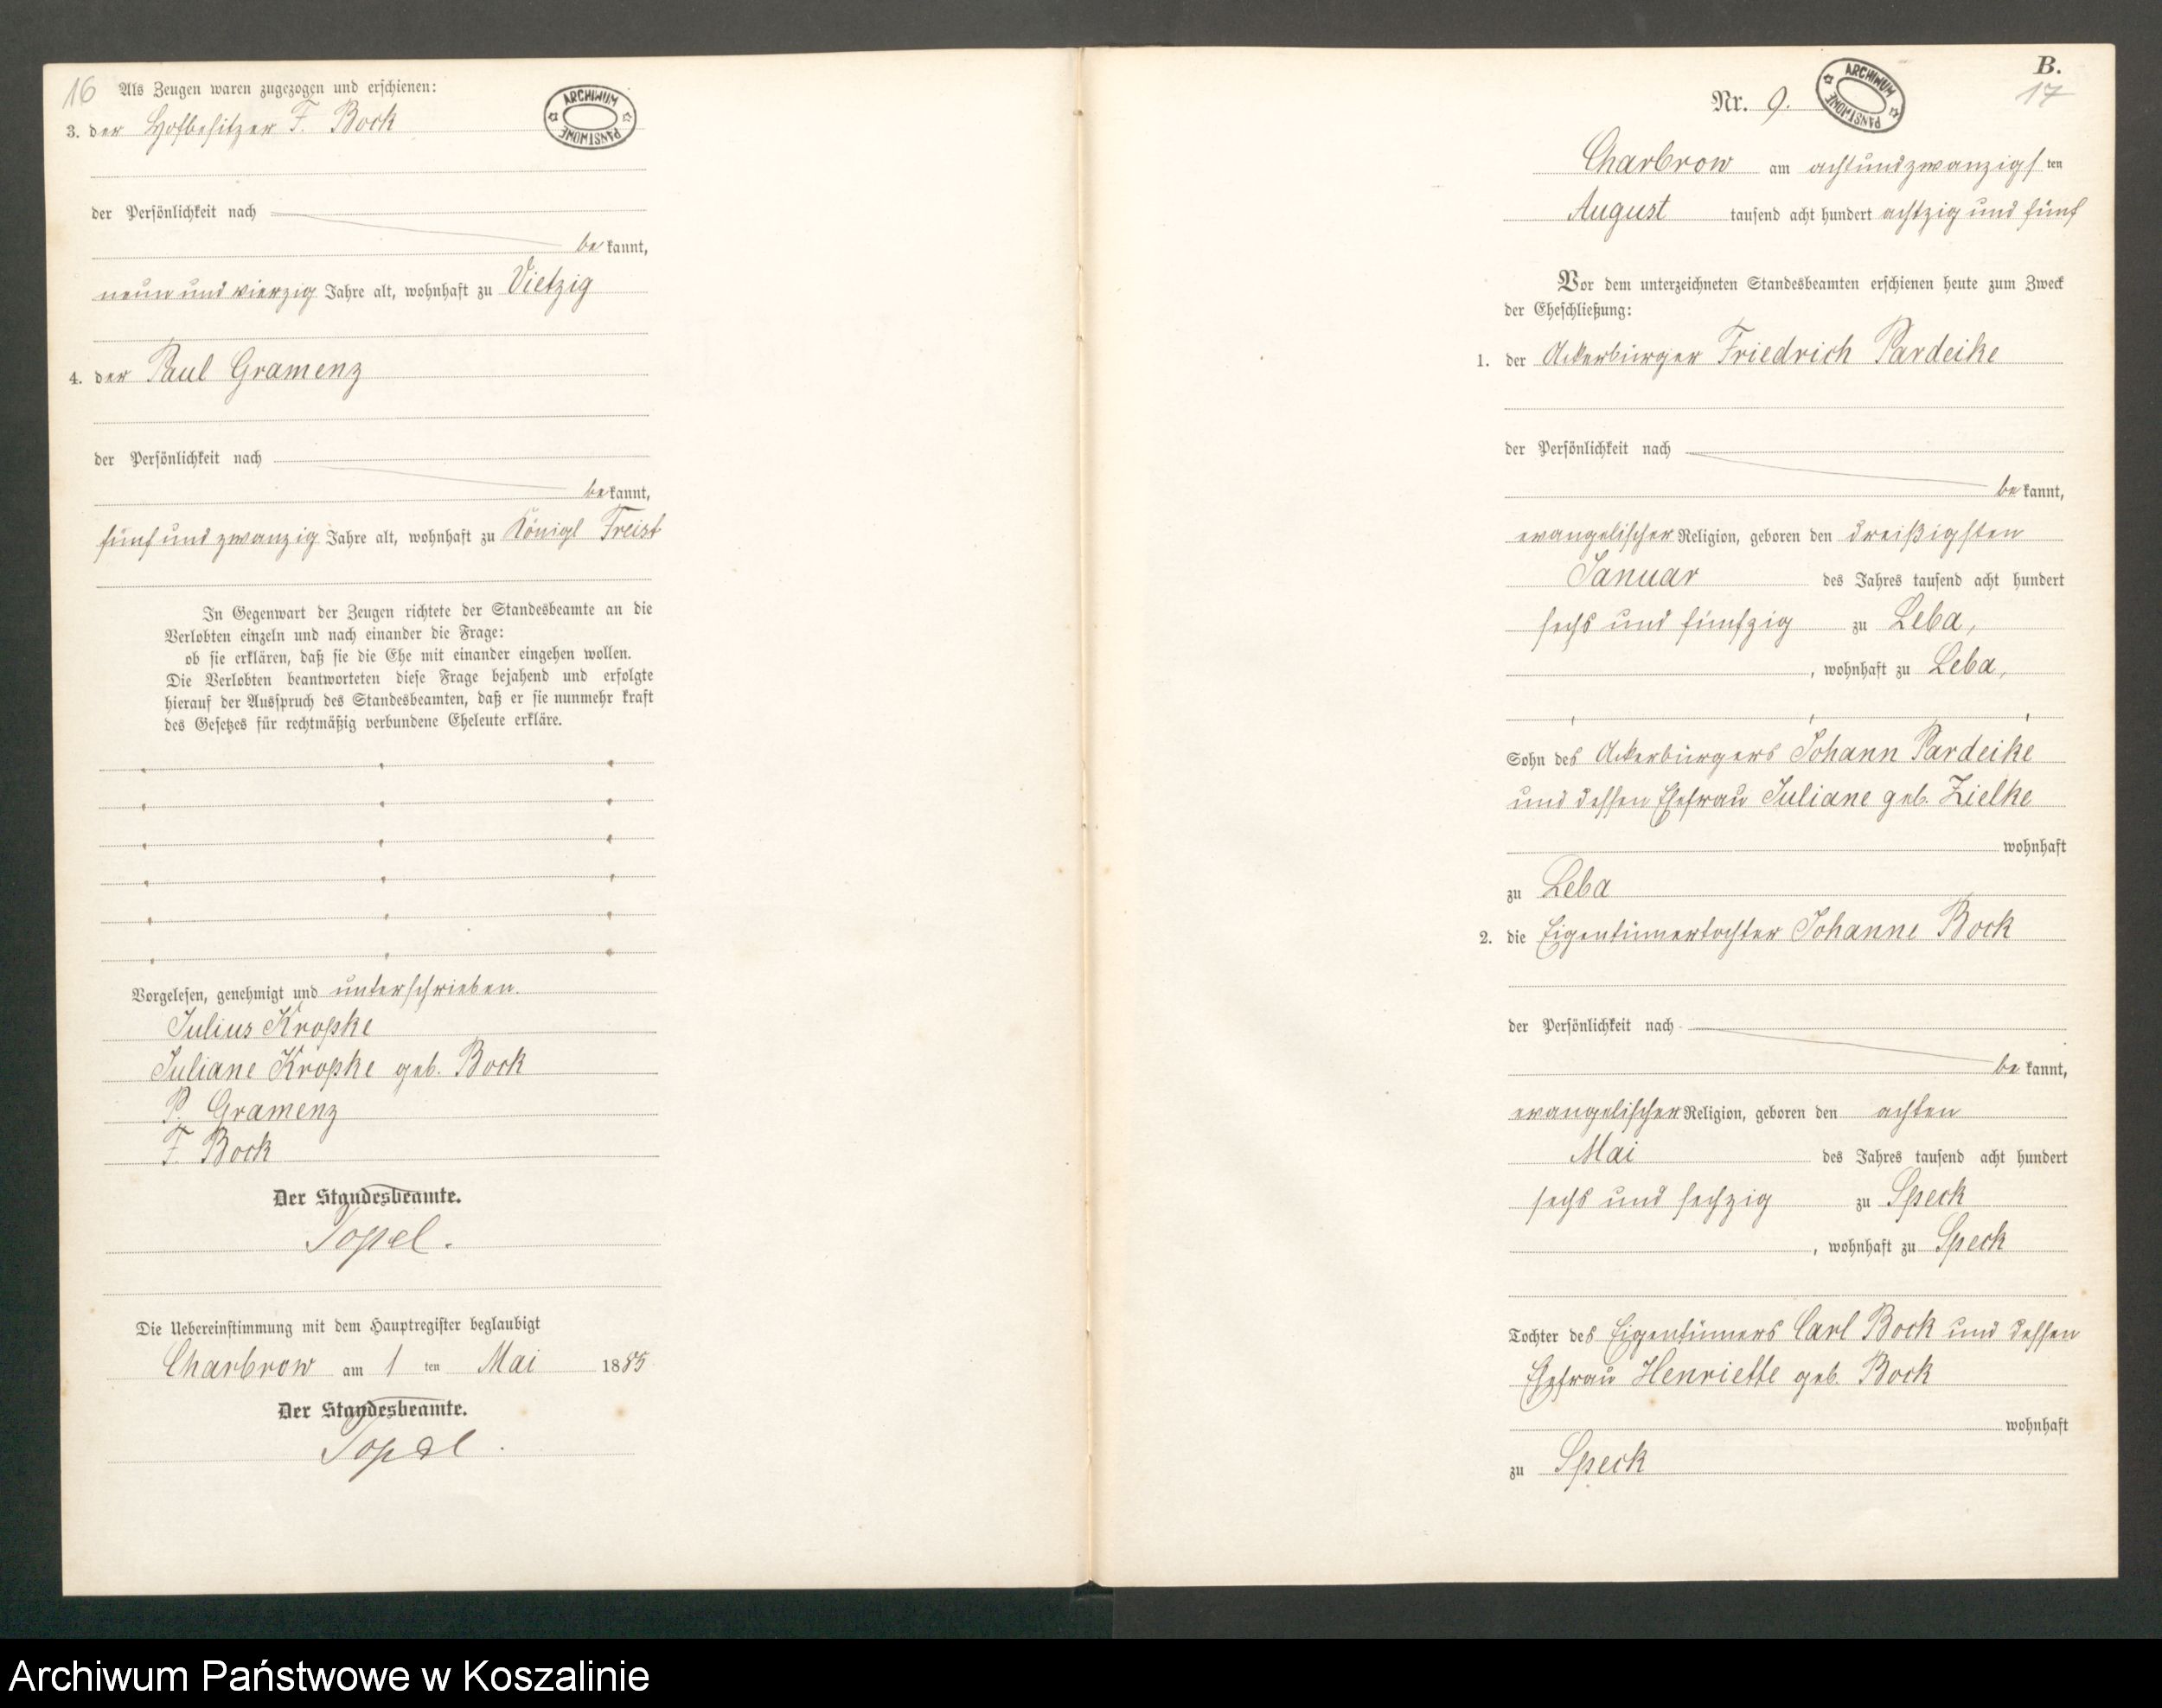 16
Als Zeugen waren zugezogen und erschienen:
3. der Hofbesitzer F. Bock
ARCHIWUM PAŃSTWOWE
der Persönlichkeit nach
be kannt,
neun und vierzig Jahre alt, wohnhaft zu Vietzig
4. der Paul Gramenz
der Persönlichkeit nach
be kannt,
fünf und zwanzig Jahre alt, wohnhaft zu Königl Freist
In Gegenwart der Zeugen richtete der Standesbeamte an die
Verlobten einzeln und nach einander die Frage:
ob sie erklären, daß sie die Ehe mit einander eingehen wollen.
Die Verlobten beantworteten diese Frage bejahend und erfolgte
hierauf der Ausspruch des Standesbeamten, daß er sie nunmehr kraft
des Gesetzes für rechtmäßig verbundene Eheleute erkläre.
Vorgelesen, genehmigt und unterschrieben.
Julius Kropke
Juliane Kropke geb. Bock
P. Gramenz
F. Bock
Der Standesbeamte.
Topel.
Die Uebereinstimmung mit dem Hauptregister beglaubigt
Charbrow am 1 ten Mai 1885
Der Standesbeamte.
Topel.
B.
17
Nr. 9.
ARCHIWUM PAŃSTWOWE
Charbrow am achtundzwanzigs ten
August tausend acht hundert achtzig und fünf
Vor dem unterzeichneten Standesbeamten erschienen heute zum Zweck
der Eheschließung:
1. der Ackerbürger Friedrich Pardeike
der Persönlichkeit nach
be kannt,
evangelischer Religion, geboren den dreißigsten
Januar des Jahres tausend acht hundert
sechs und fünfzig zu Leba,
, wohnhaft zu Leba,
Sohn des Ackerbürgers Johann Pardeike
und dessen Ehefrau Juliane geb. Zielke
wohnhaft
zu Leba
2. die Eigentümertochter Johanne Bock
der Persönlichkeit nach
be kannt,
evangelischer Religion, geboren den achten
Mai des Jahres tausend acht hundert
sechs und sechzig zu Speck
, wohnhaft zu Speck
Tochter des Eigentümers Carl Bock und dessen
Ehefrau Henriette geb. Bock
wohnhaft
zu Speck
Archiwum Państwowe w Koszalinie